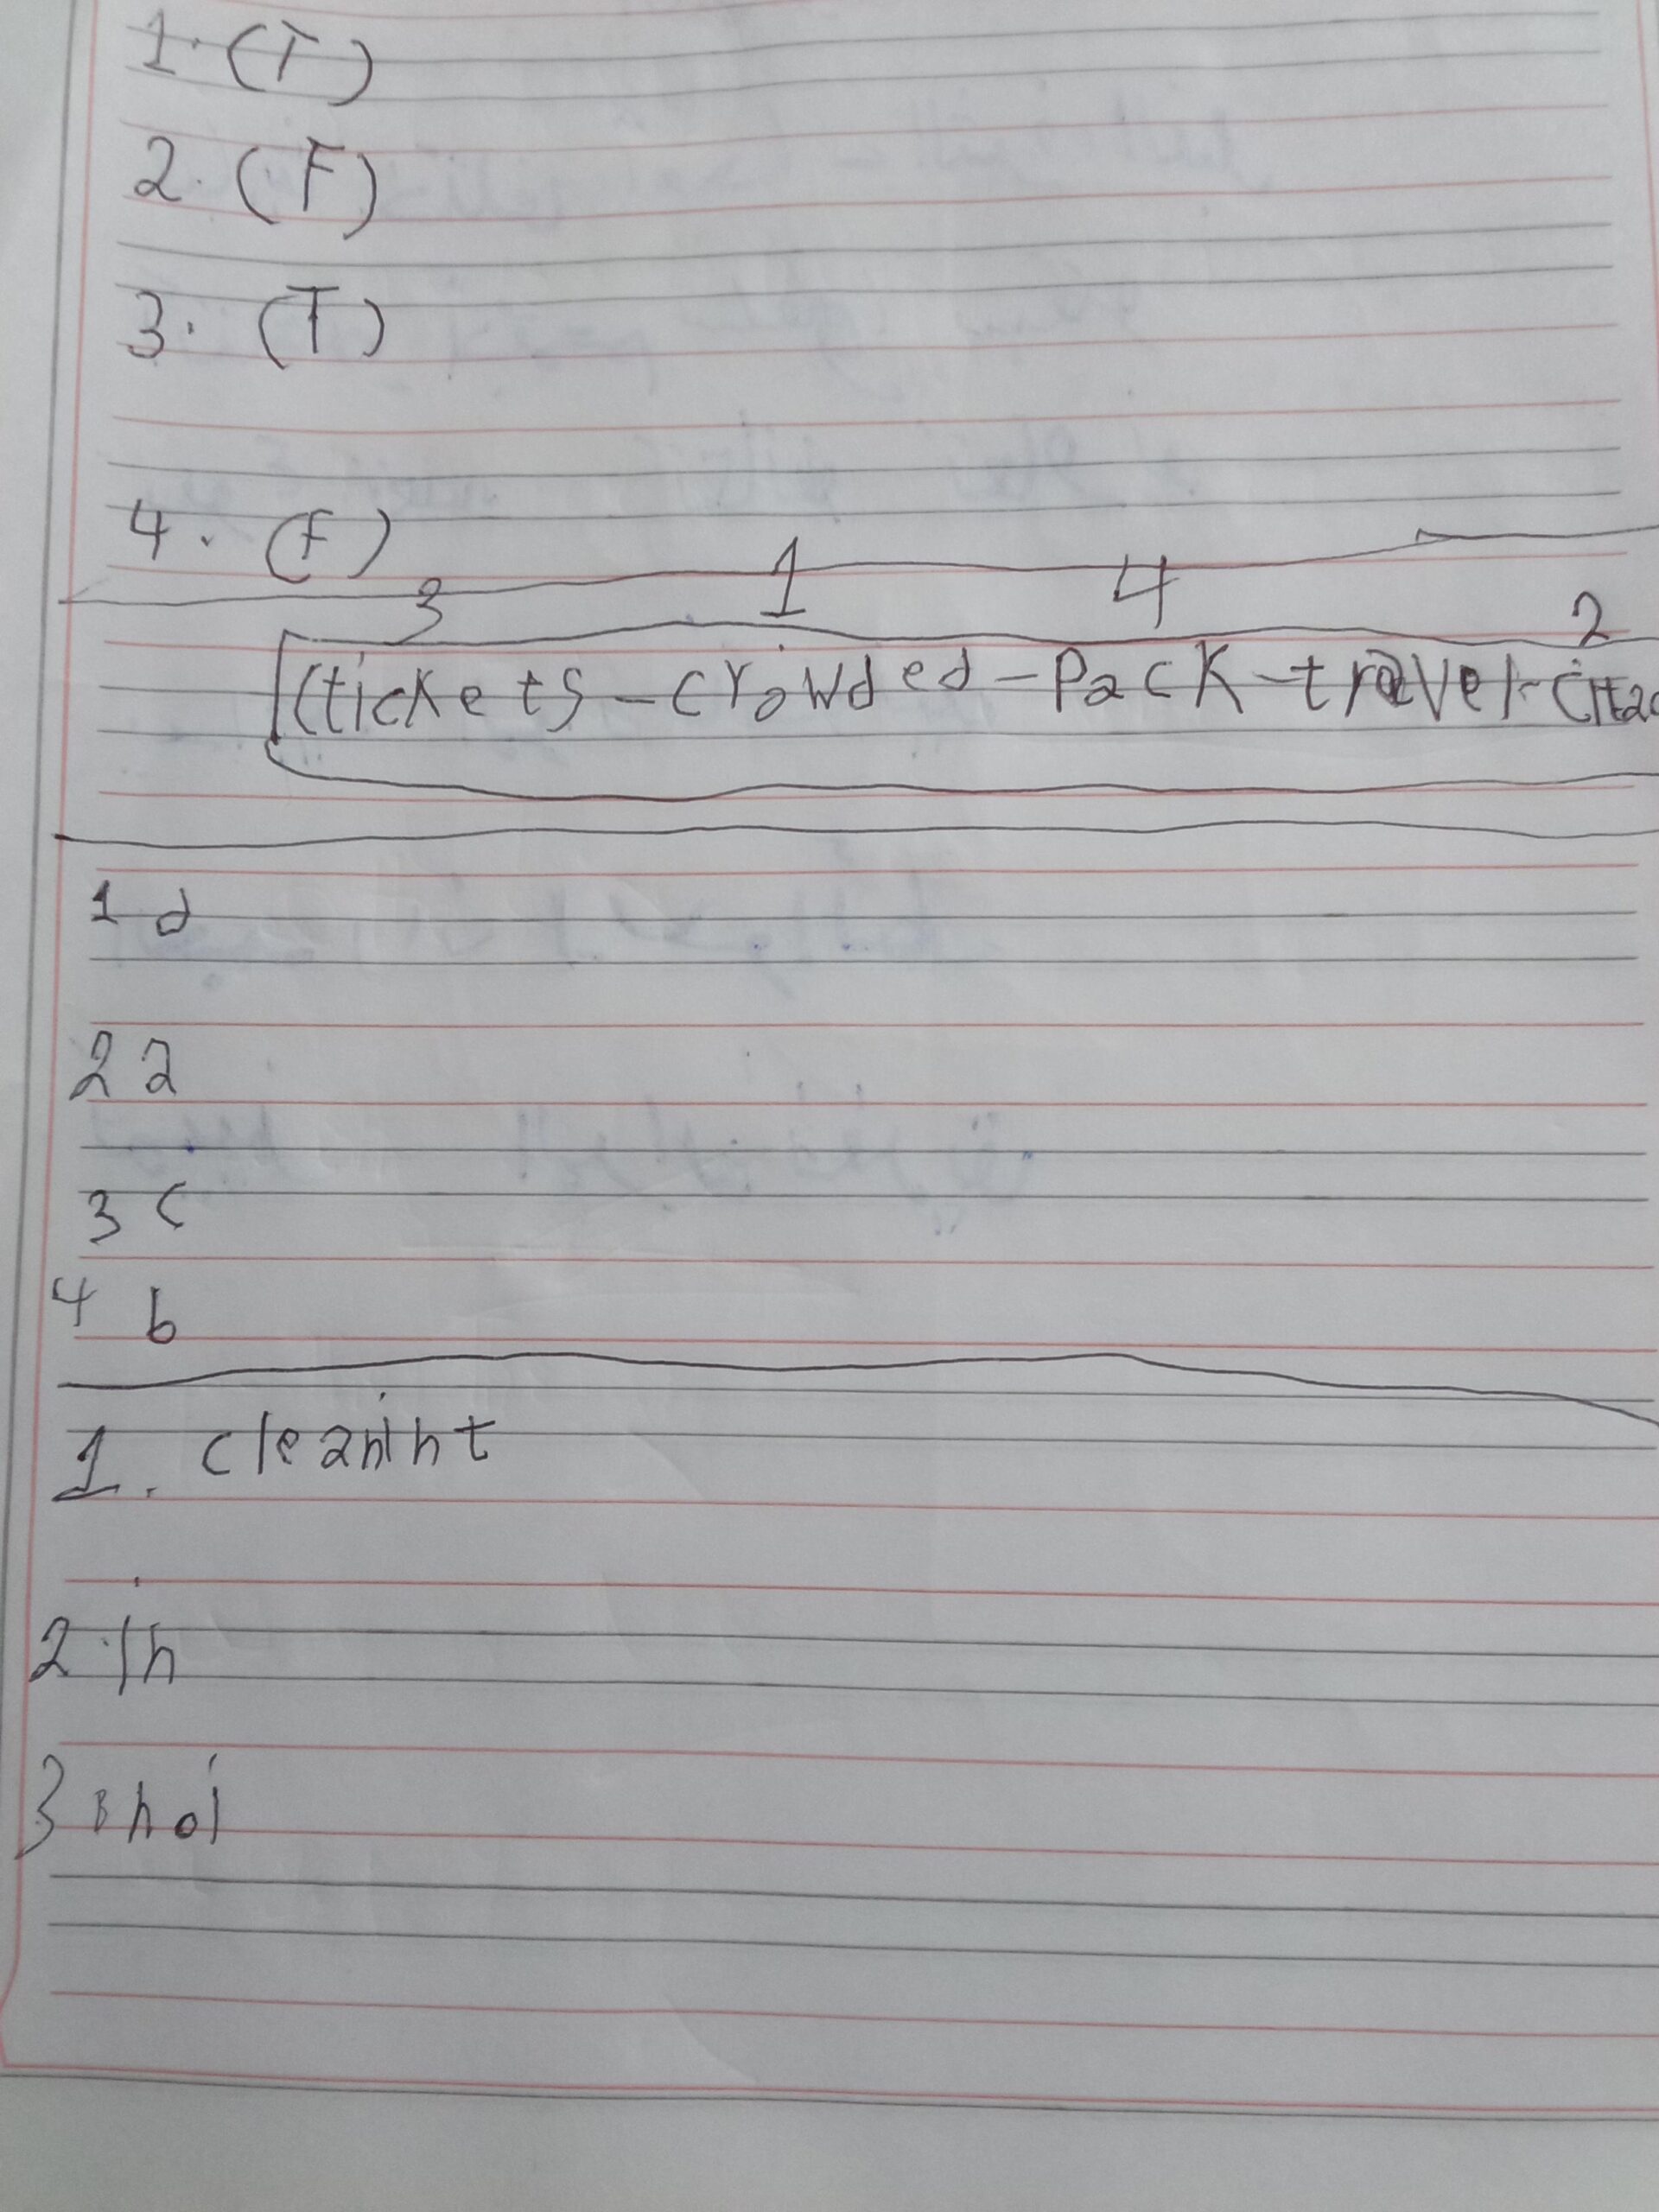 1. (T)
2. (F)
3. (T)
4. (F)
3 1 4 2
(tickets - crowded - Pack - travel -
1 d
2 a
3 c
4 b
1. cleanint
2. in
3